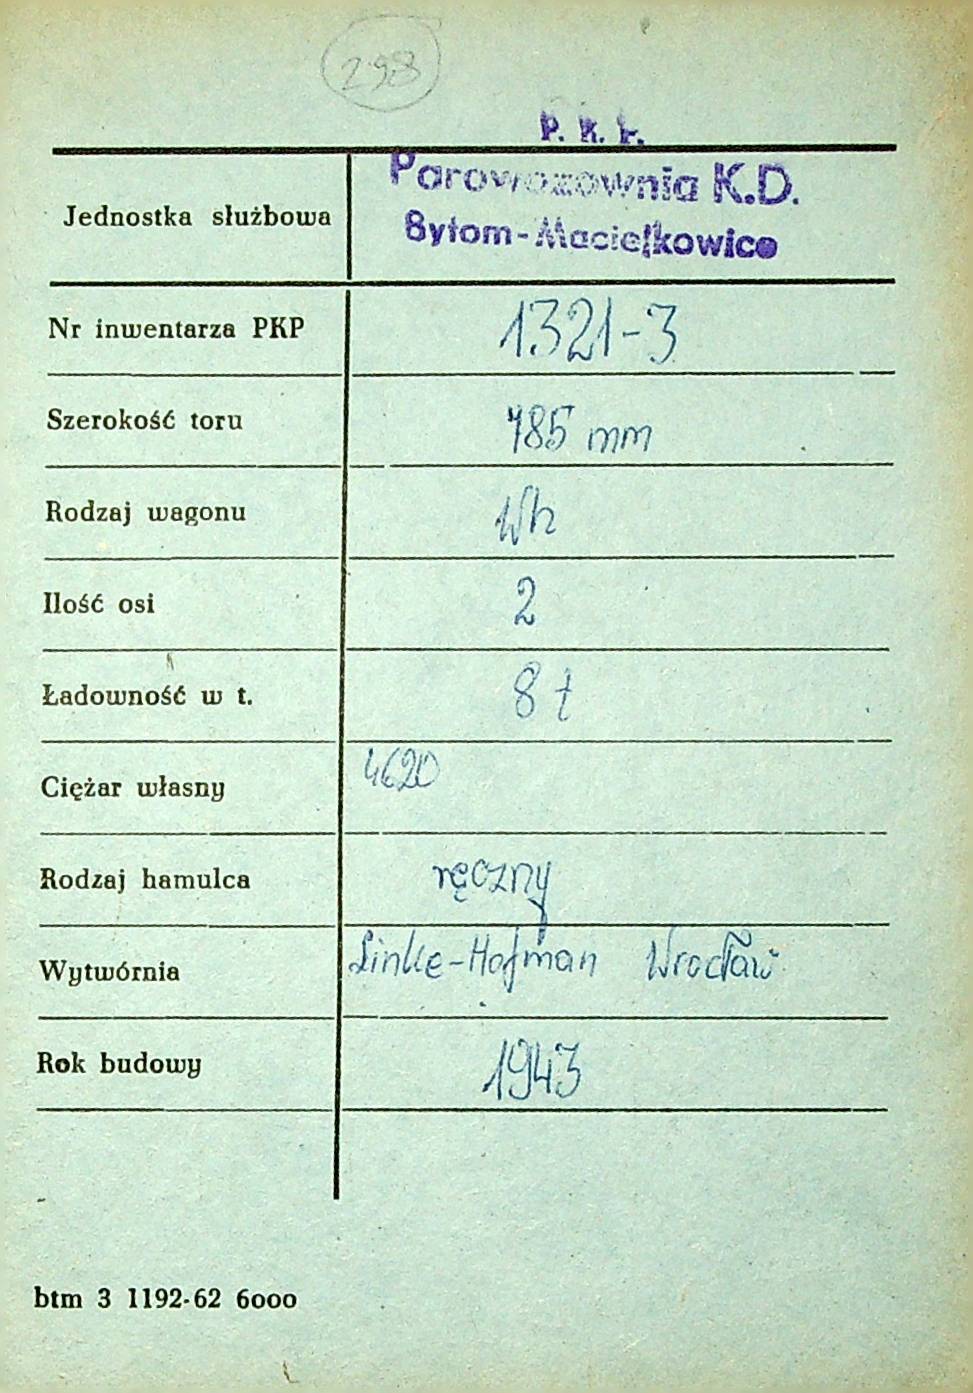 298
P. K. P.
Parowozownia K.D.
Jednostka służbowa
Bytom-Maciejkowice
Nr inwentarza PKP 1321-3
Szerokość toru 785 mm
Rodzaj wagonu Wh
Ilość osi 2
Ładowność w t. 8 t
Ciężar własny 4620
Rodzaj hamulca ręczny
Wytwórnia Linke-Hofman Wrocław
Rok budowy 1943
btm 3 1192-62 6000